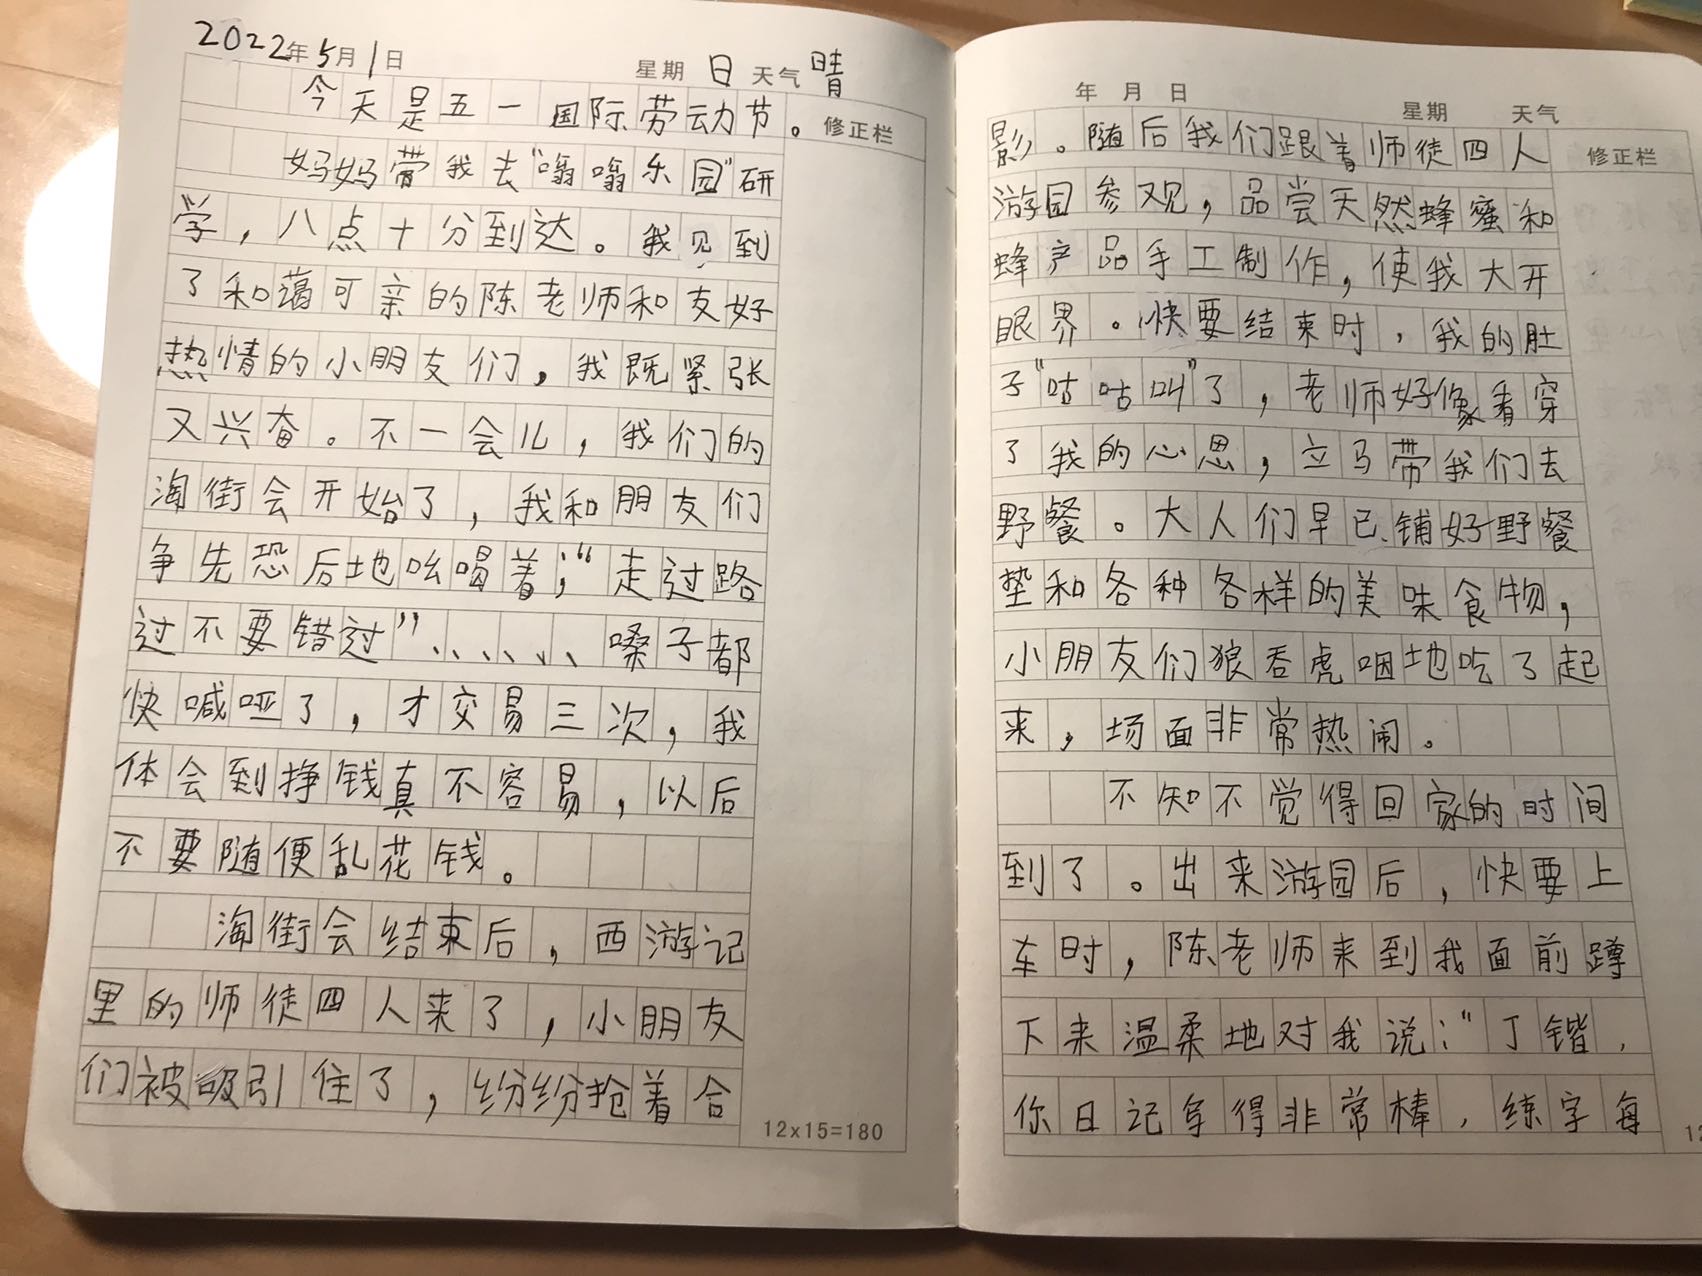 2022年5月1日 星期 日 天气 晴
今天是五一国际劳动节。
修正栏
妈妈带我去“嗡嗡乐园”研
学，八点十分到达。我见到
了和蔼可亲的陈老师和友好
热情的小朋友们，我既紧张
又兴奋。不一会儿，我们的
淘街会开始了，我和朋友们
争先恐后地吆喝着；“走过路
过不要错过”、、、、、、嗓子都
快喊哑了，才交易三次，我
体会到挣钱真不容易，以后
不要随便乱花钱。
淘街会结束后，西游记
里的师徒四人来了，小朋友
们被吸引住了，纷纷抢着合
12×15=180
年 月 日 星期 天气
影。随后我们跟着师徒四人
修正栏
游园参观，品尝天然蜂蜜和
蜂产品手工制作，使我大开
眼界。快要结束时，我的肚
子“咕咕叫”了，老师好像看穿
了我的心思，立马带我们去
野餐。大人们早已铺好野餐
垫和各种各样的美味食物，
小朋友们狼吞虎咽地吃了起
来，场面非常热闹。
不知不觉得回家的时间
到了。出来游园后，快要上
车时，陈老师来到我面前蹲
下来温柔地对我说：“丁锴，
你日记写得非常棒，练字每